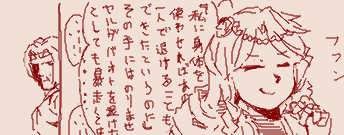 『私に身体を
使わせれば
一人で退けることも
できたというのに』
その手にはのりませ
ヤルダバオトを避けた
としても暴走する
フフン